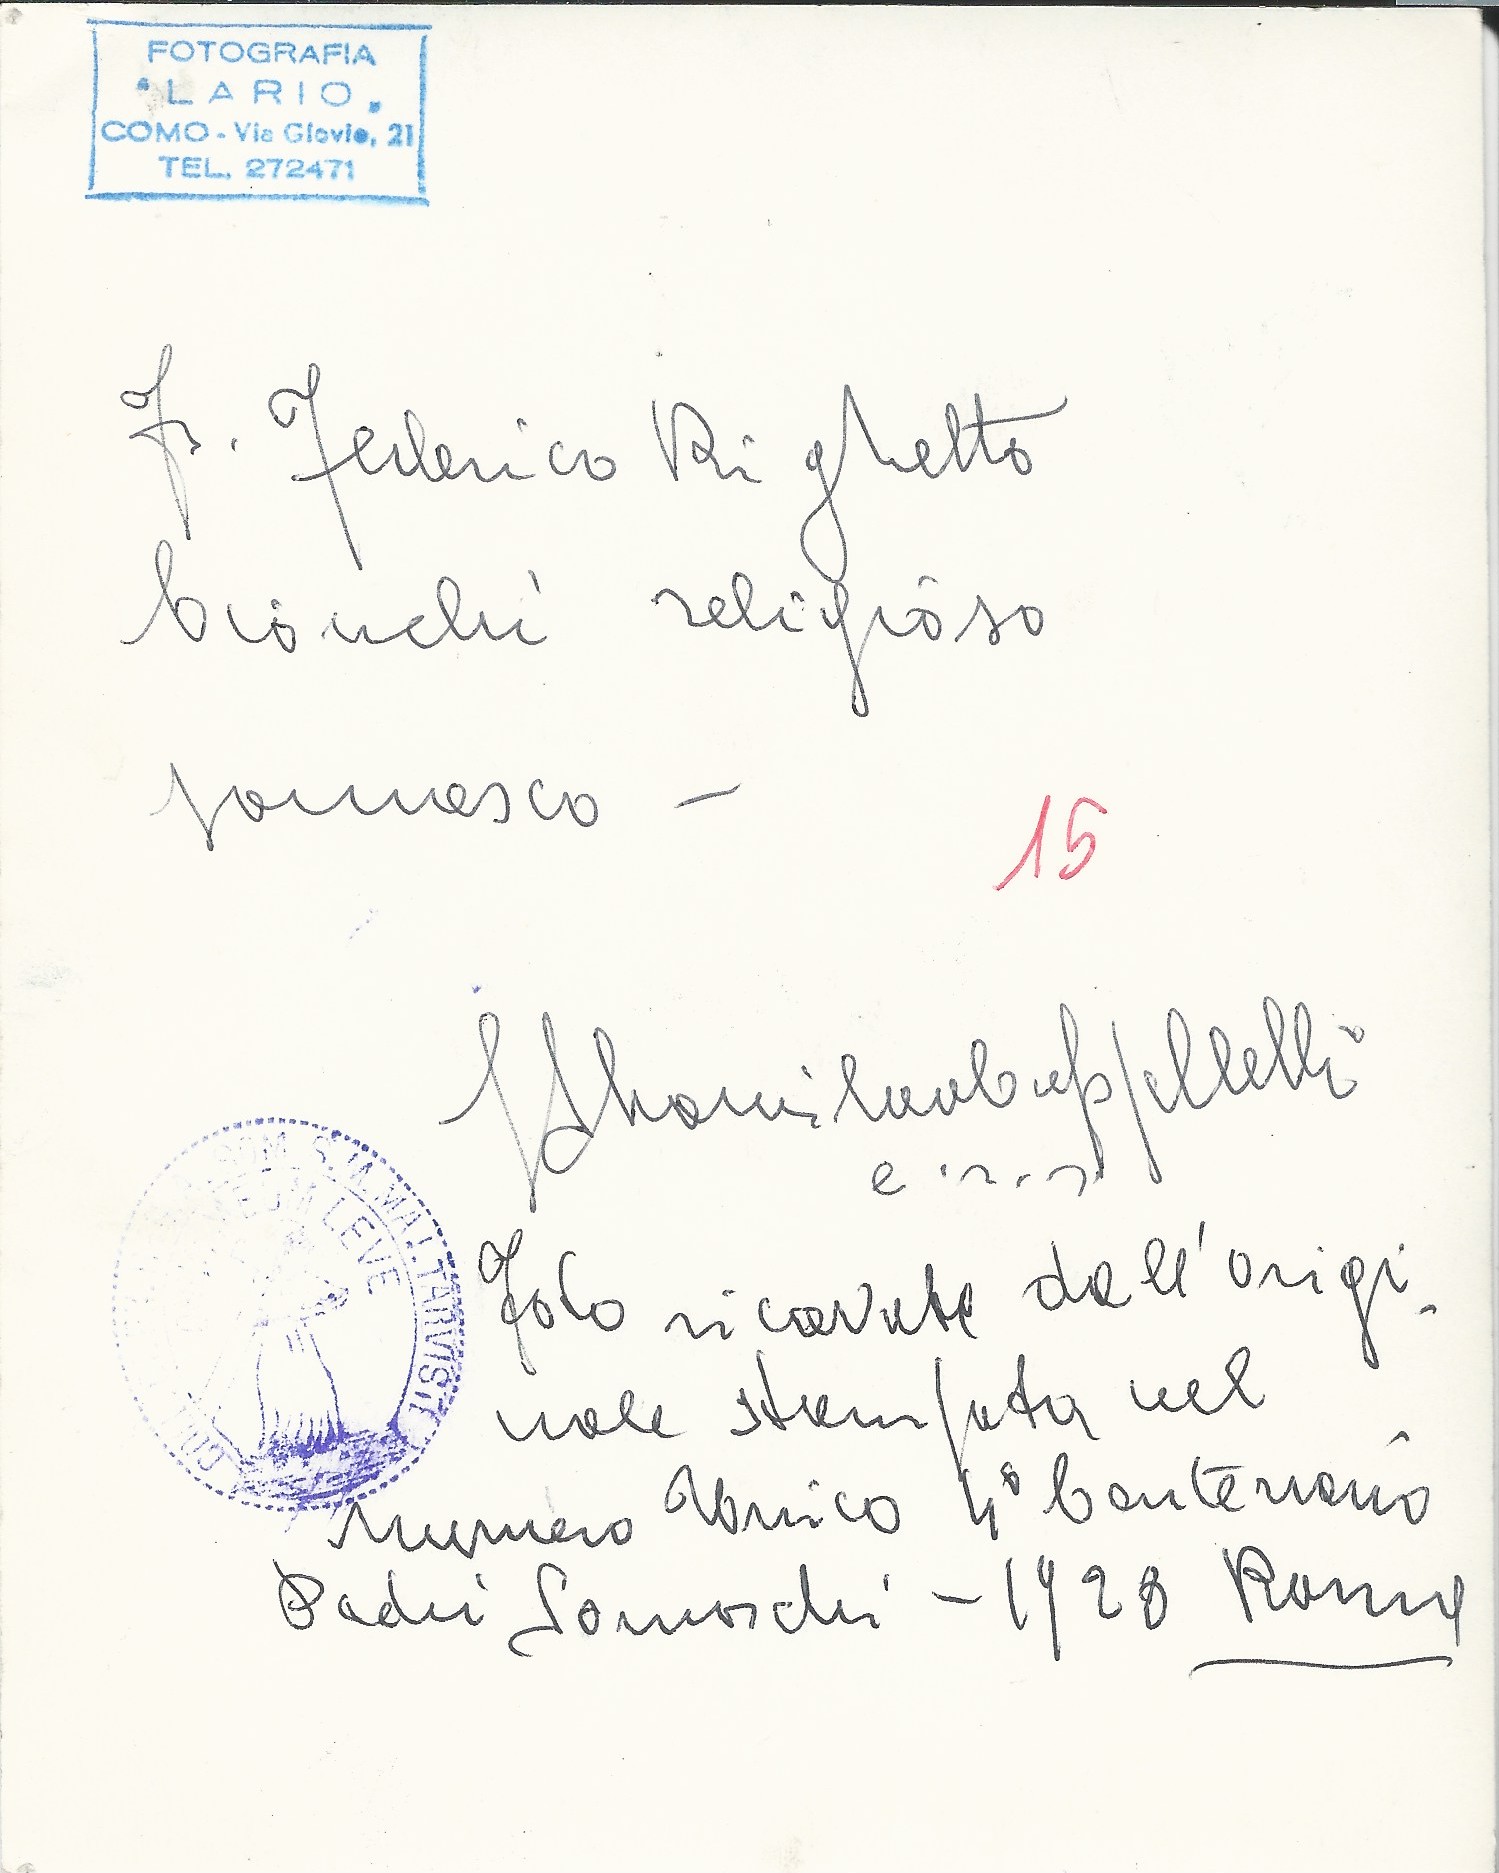 FOTOGRAFIA
"LARIO"
COMO - Via Giovio, 21
TEL. 272471
Fr. Federico Righetto
Cionchi religioso
somasco -
15
c.r.s.
Foto ricavata dall'origi-
nale stampata nel
numero Unico 4° Centenario
Padri Somaschi - 1928 Roma
SOM. S. M. MAJ. TARVISII
MEUM LEVE